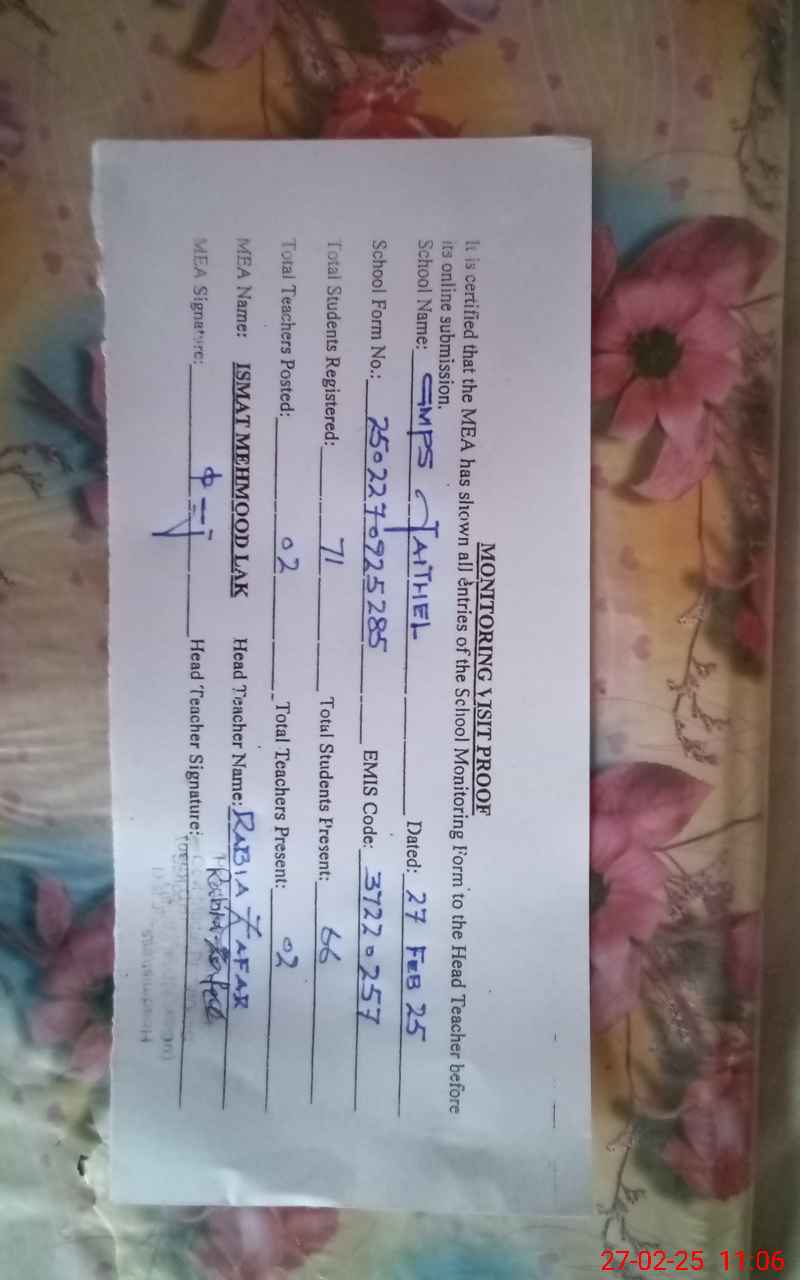 MONITORING VISIT PROOF
It is certified that the MEA has shown all entries of the School Monitoring Form to the Head Teacher before
its online submission.
School Name: GMPS JAITHEL Dated: 27 FEB 25
School Form No.: 2502270925285 EMIS Code: 37220257
Total Students Registered: 71 Total Students Present: 66
Total Teachers Posted: 02 Total Teachers Present: 02
MEA Name: ISMAT MEHMOOD LAK Head Teacher Name: RABIA ZAFAR
MEA Signature: Head Teacher Signature:
27-02-25 11:06